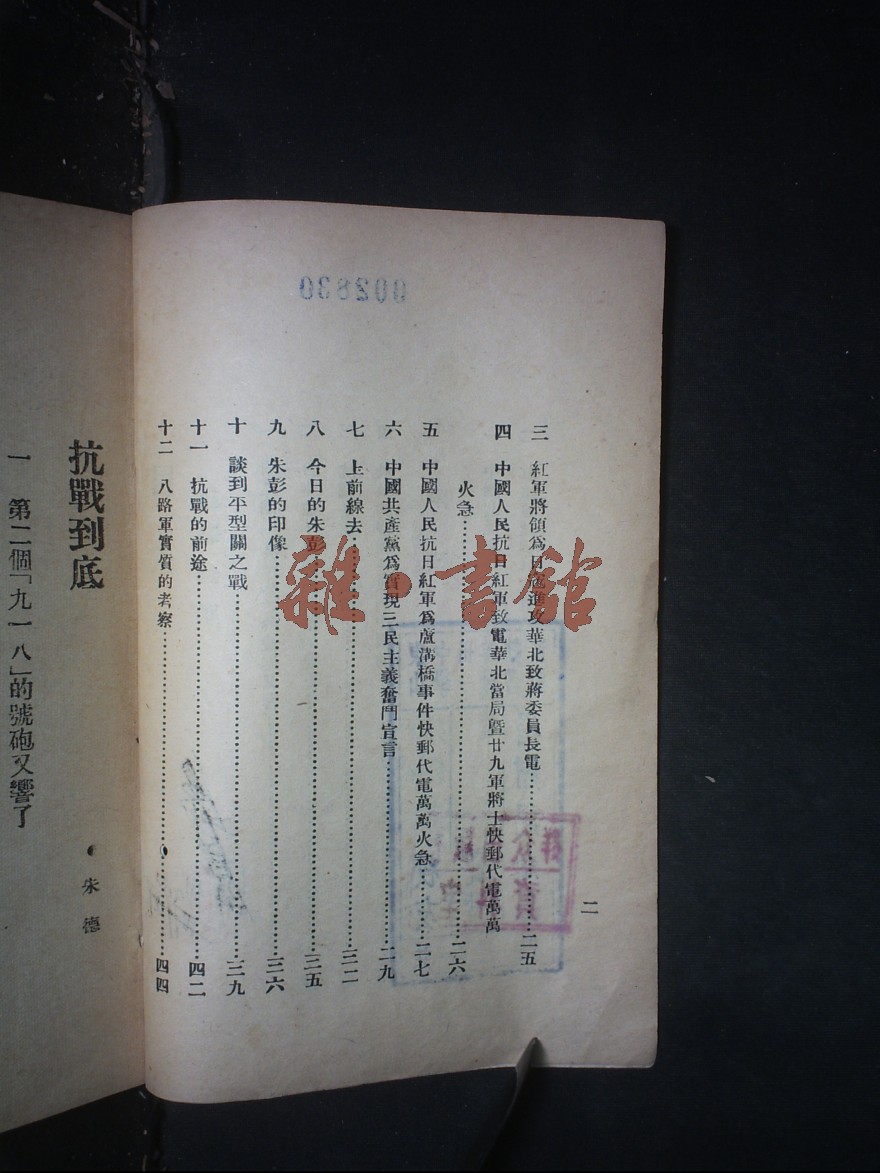 002830
三　紅軍將領爲日寇進攻華北致蔣委員長電……二五
四　中國人民抗日紅軍致電華北當局曁廿九軍將士快郵代電萬萬
火急……二六
五　中國人民抗日紅軍爲盧溝橋事件快郵代電萬萬火急……二七
六　中國共產黨爲實現三民主義奮鬥宣言……二九
七　上前線去……三二
八　今日的朱彭……三五
九　朱彭的印像……三六
十　談到平型關之戰……三九
十一　抗戰的前途……四二
十二　八路軍實質的考察……四四
二
抗戰到底
朱德
一　第二個「九一八」的號砲又響了
雜·書館